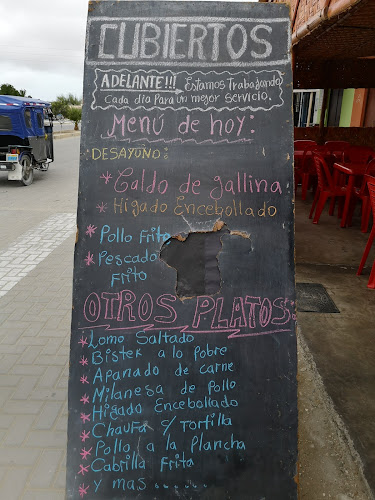 CUBIERTOS
ADELANTE!!! Estamos Trabajando
Cada día Para un mejor servicio.
Menú de hoy:
DESAYUNO:
* Caldo de gallina
* Higado Encebollado
* Pollo Frito
* Pescado
Frito
OTROS PLATOS:
* Lomo Saltado
* Bistek a lo pobre
* Apanado de carne
* Milanesa de Pollo
* Higado Encebollado
* Chaufa c/ Tortilla
* Pollo a la Plancha
* Cabrilla Frita
* y mas......